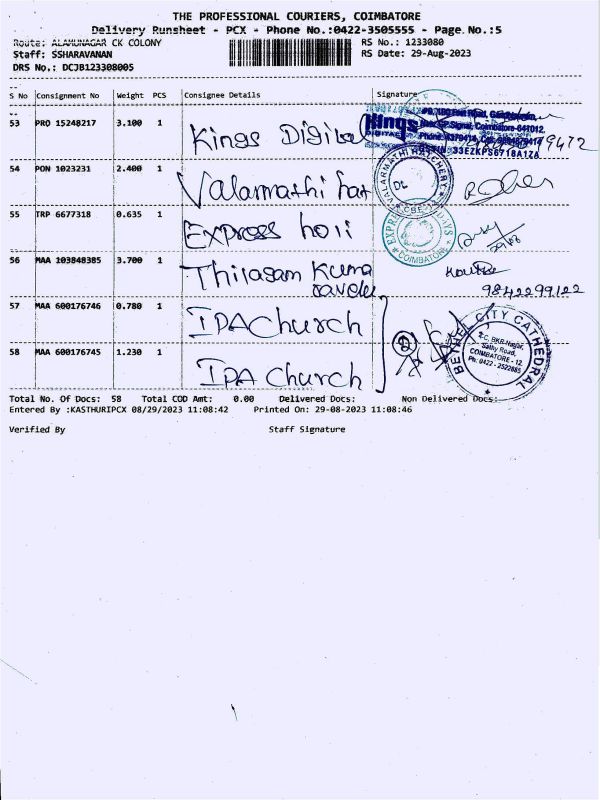 THE PROFESSIONAL COURIERS, COIMBATORE
Delivery Runsheet - PCX - Phone No.:0422-3505555 - Page No.:5
Route: ALAMUNAGAR CK COLONY
RS No.: 1233080
Staff: SSHARAVANAN
RS Date: 29-Aug-2023
DRS No.: DCJB123308005
S No Consignment No Weight PCS Consignee Details Signature
53 PRO 15248217 3.100 1 Kings Digital
Kings
DIGITAL
Coimbatore-641012.
GSTIN 33EZKPS6718A1ZA
9472
54 PON 1023231 2.400 1 Valarmathi hat
VALARMATHI HATCHERY
CBE
55 TRP 6677318 0.635 1 Express holi
COIMBATORE
56 MAA 103848385 3.700 1 Thilagam Kuma
ravelu
9842299122
57 MAA 600176746 0.780 1 IPA Church
58 MAA 600176745 1.230 1 IPA Church
BETHEL CITY CATHEDRAL
BKR-Nagar,
Sathy Road,
COIMBATORE - 12
Ph: 0422 - 2522885
Total No. Of Docs: 58 Total COD Amt: 0.00 Delivered Docs: Non Delivered Docs:
Entered By :KASTHURIPCX 08/29/2023 11:08:42 Printed On: 29-08-2023 11:08:46
Verified By Staff Signature